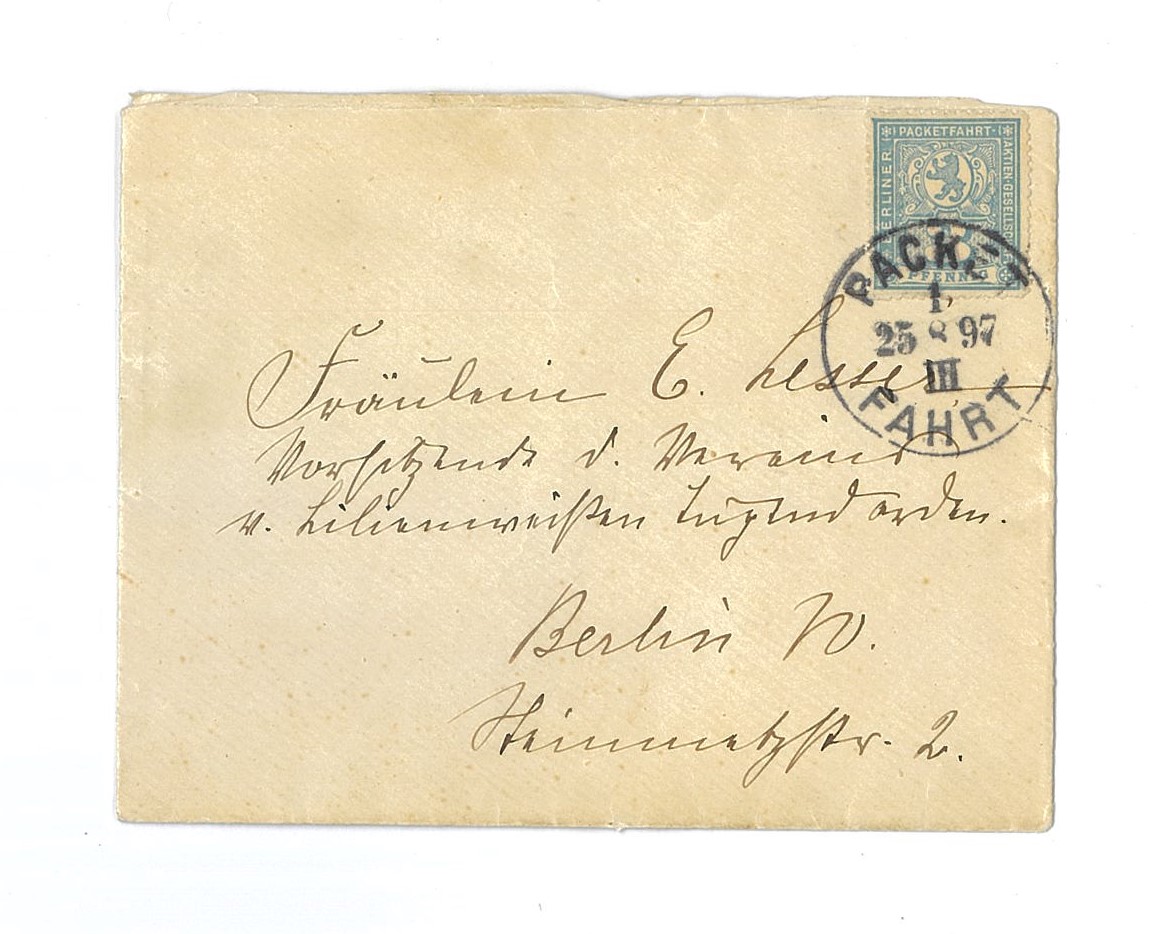 PACKETFAHRT-
BERLINER
AKTIEN-GESELLSCH
PFENNIG
PACKET
1,
25 8 97
III
FAHRT
Fräulein E. Lesser,
Vorsitzende d. Vereins
v. Lilienweißen Tugendorden.
Berlin W.
Steinmetzstr. 2.